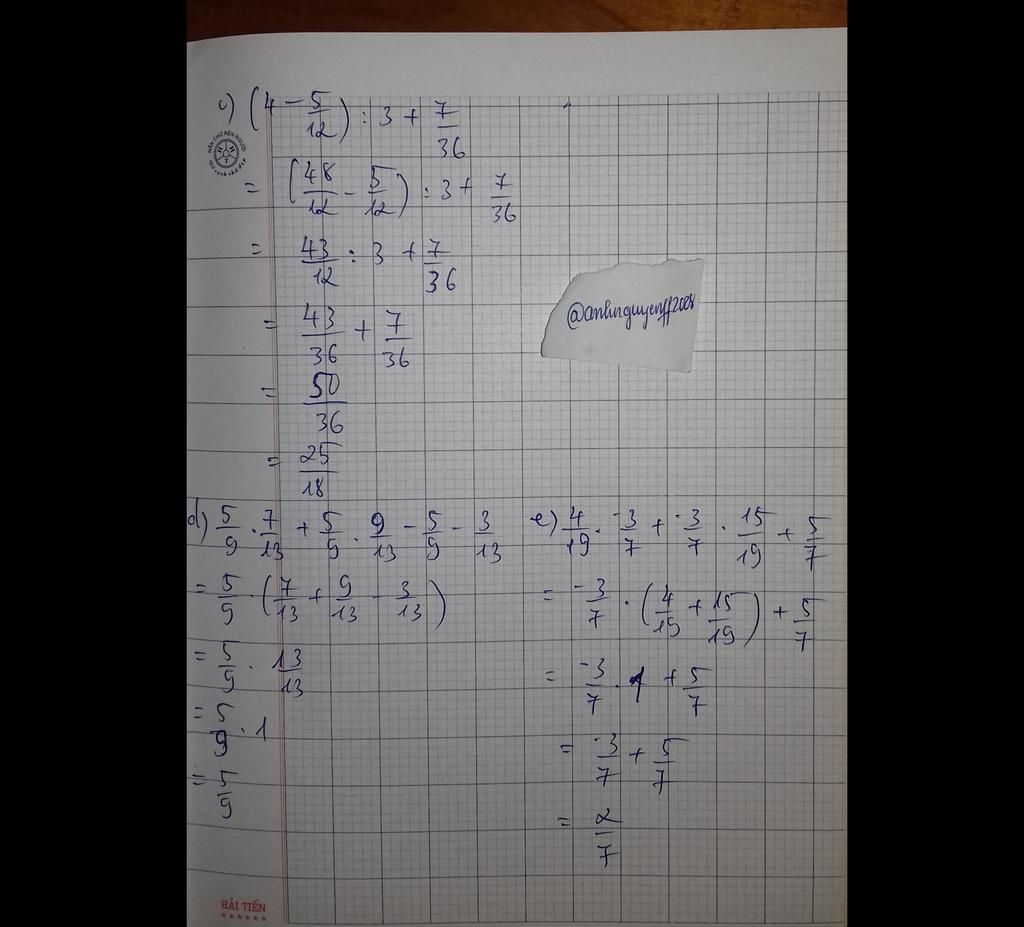 c) (4 - 5/12) : 3 + 7/36
= (48/12 - 5/12) : 3 + 7/36
= 43/12 : 3 + 7/36
= 43/36 + 7/36
= 50/36
= 25/18
@anhnguyenff2008
d) 5/9 . 7/13 + 5/9 . 9/13 - 5/9 - 3/13
= 5/9 . (7/13 + 9/13 - 3/13)
= 5/9 . 13/13
= 5/9 . 1
= 5/9
e) 4/19 . -3/7 + -3/7 . 15/19 + 5/7
= -3/7 . (4/19 + 15/19) + 5/7
= -3/7 . 1 + 5/7
= -3/7 + 5/7
= 2/7
HẢI TIẾN